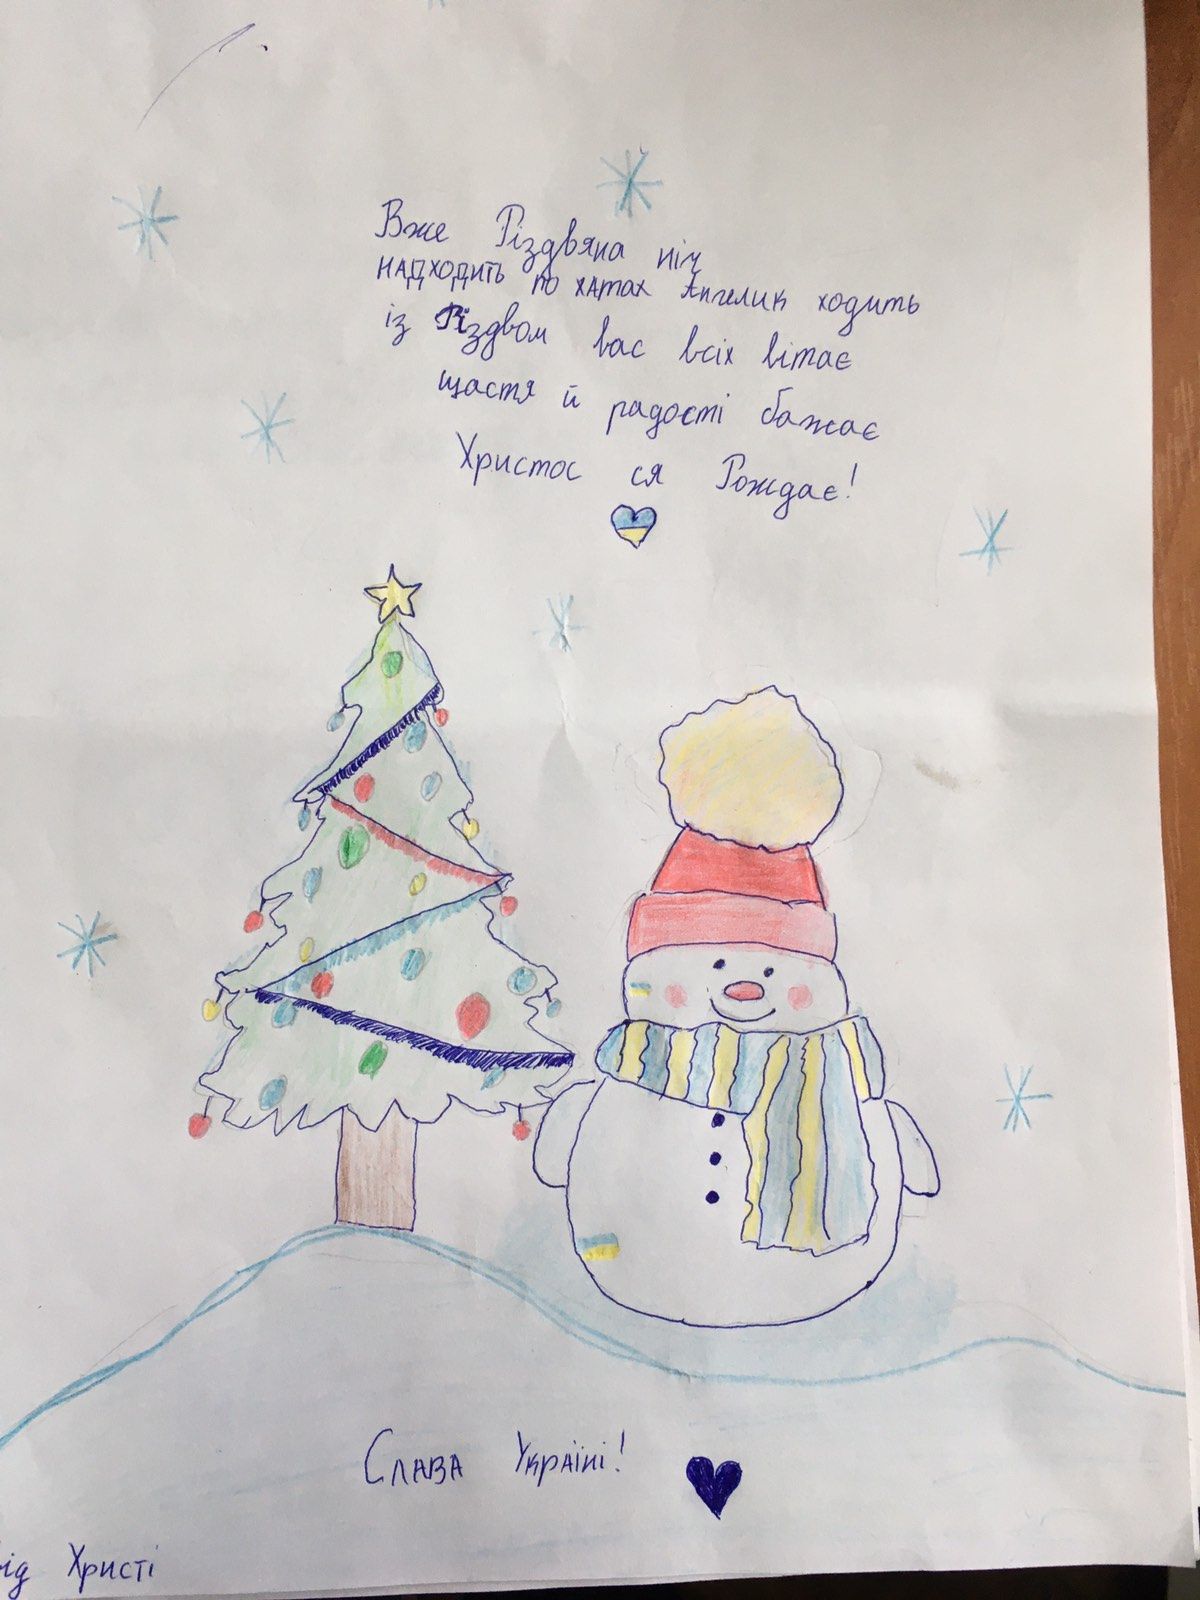 Вже Різдвяна ніч
надходить по хатах Ангелик ходить
із Різдвом вас всіх вітає
щастя й радості бажає
Христос ся Рождає!
Слава Україні!
від Христі